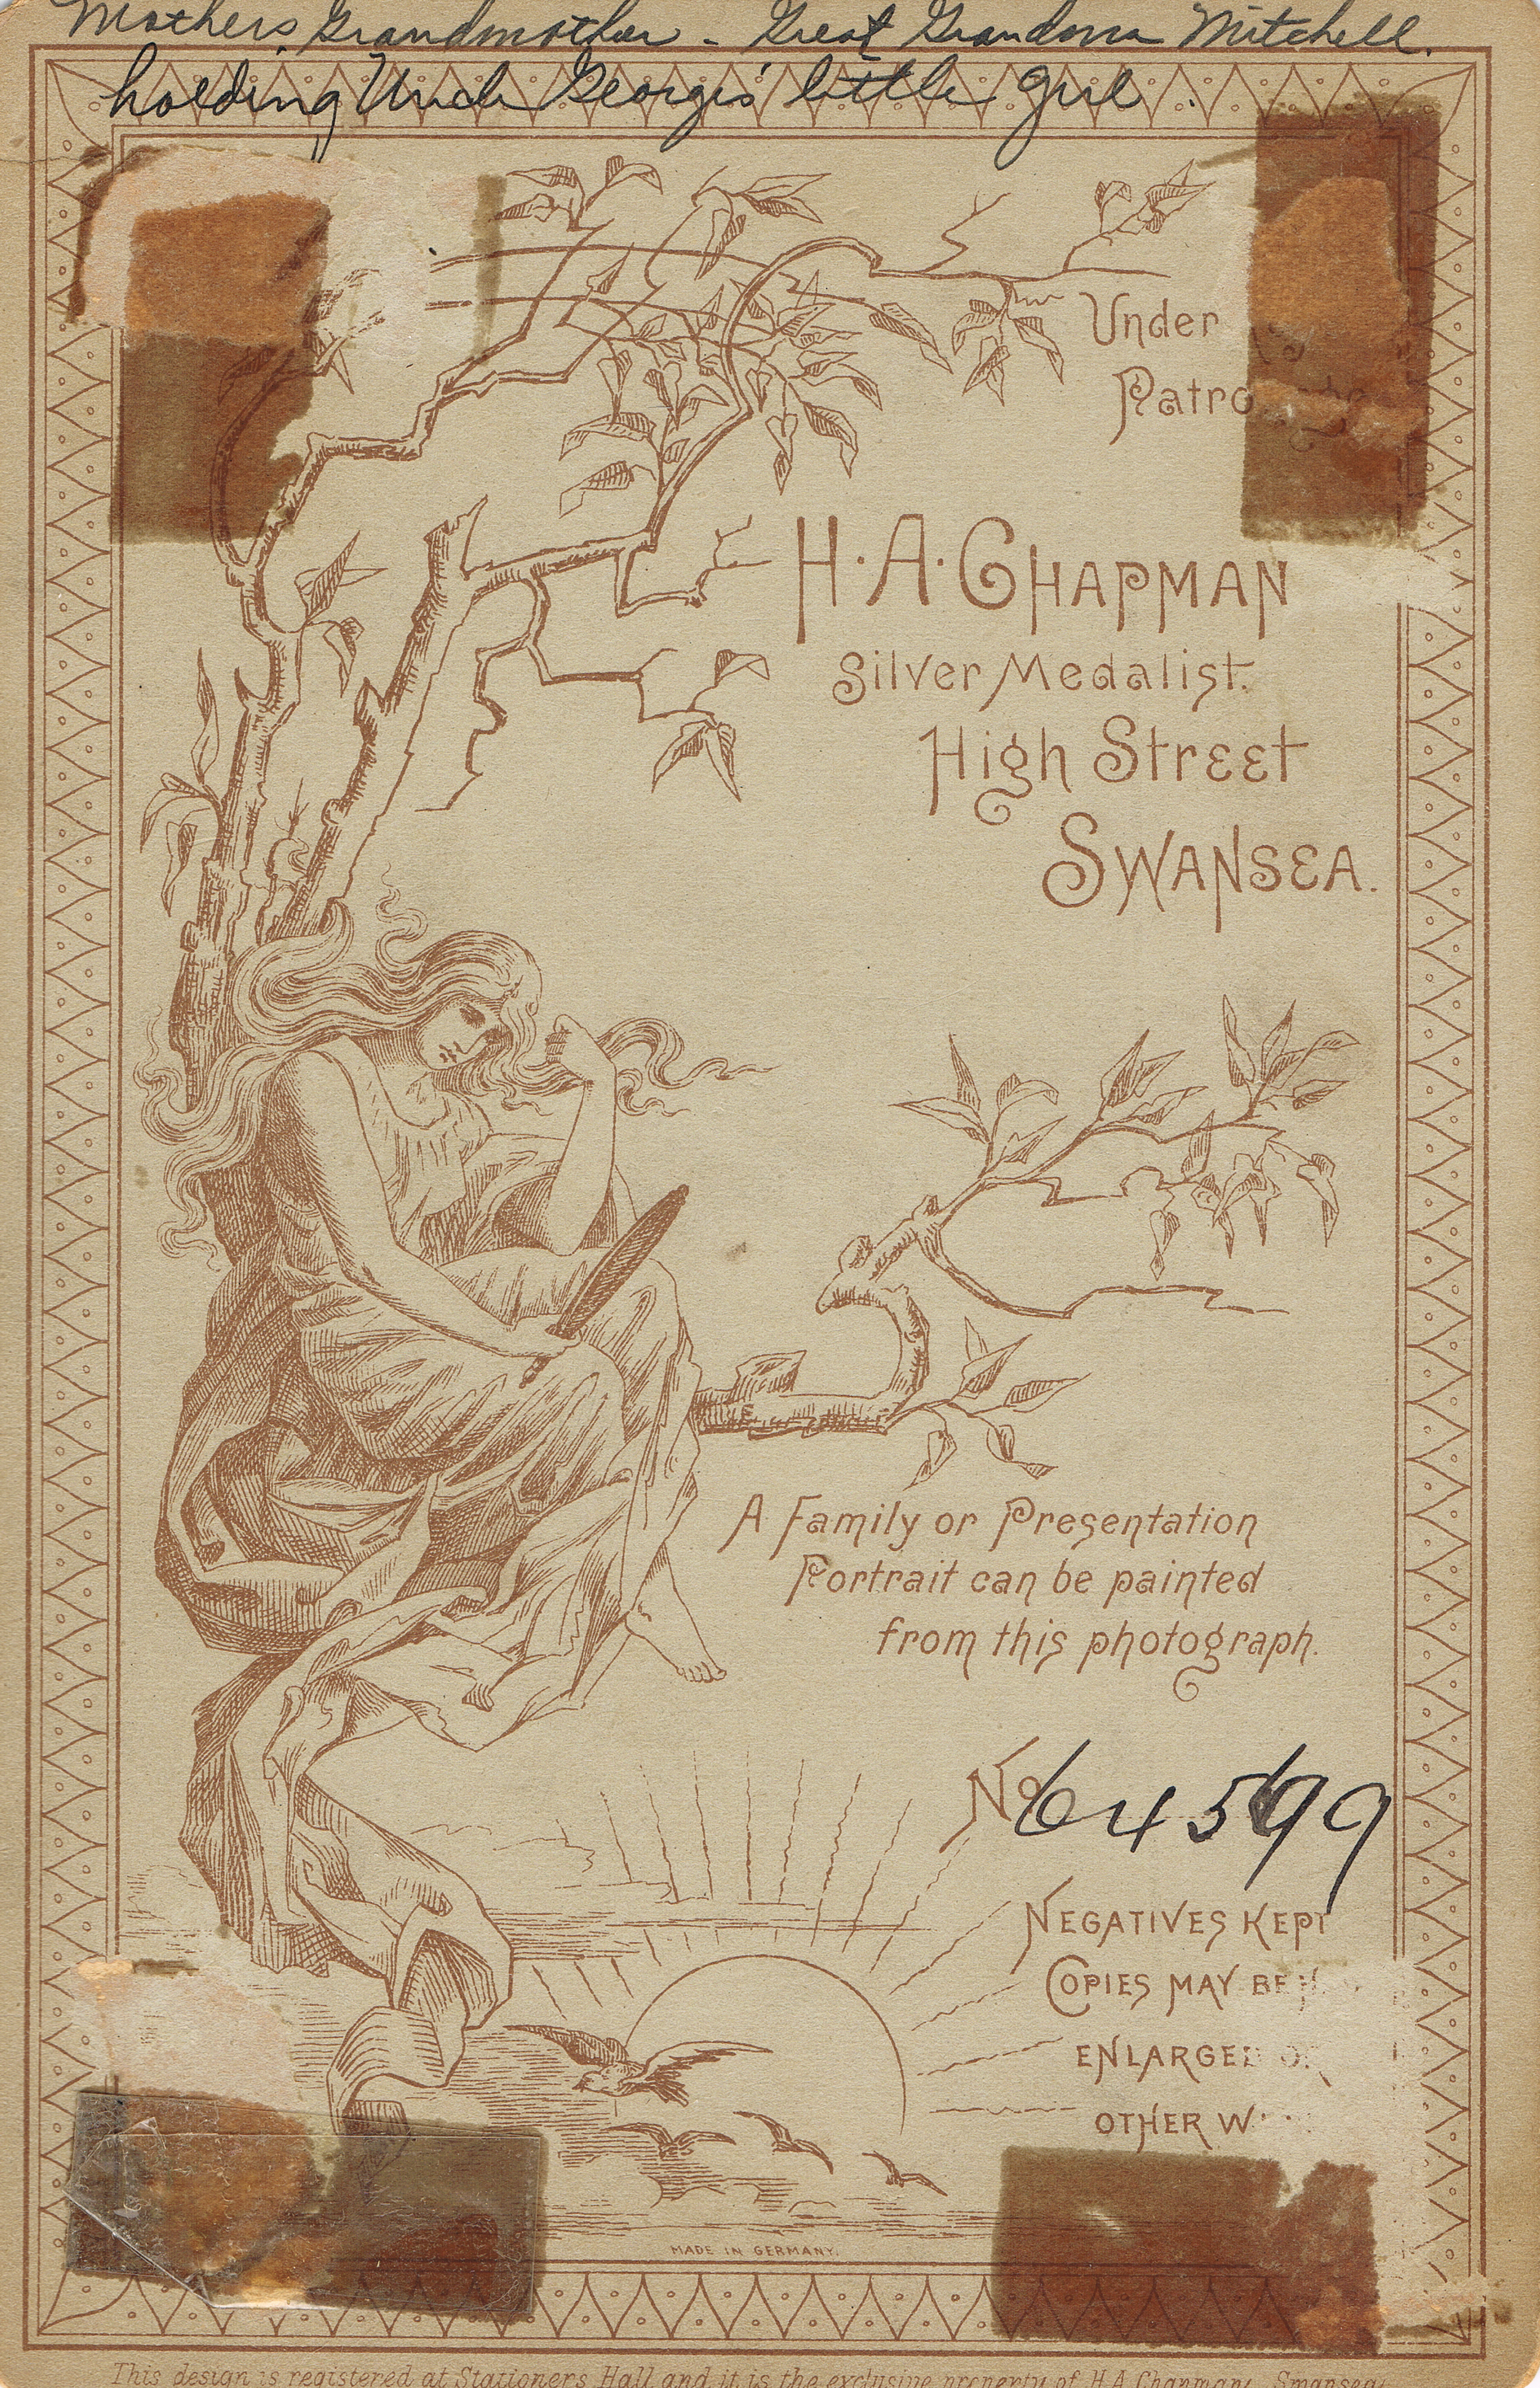 Mother's Grandmother - Great Grandma Mitchell.
holding Uncle George's little girl.
Under
H. A. CHAPMAN
Silver Medalist.
High Street
SWANSEA.
A Family or Presentation
Portrait can be painted
from this photograph.
No 64599
NEGATIVES KEPT
COPIES MAY BE
ENLARGED
OTHER
MADE IN GERMANY.
This design is registered at Stationers Hall and it is the exclusive property of H.A. Chapman, Swansea